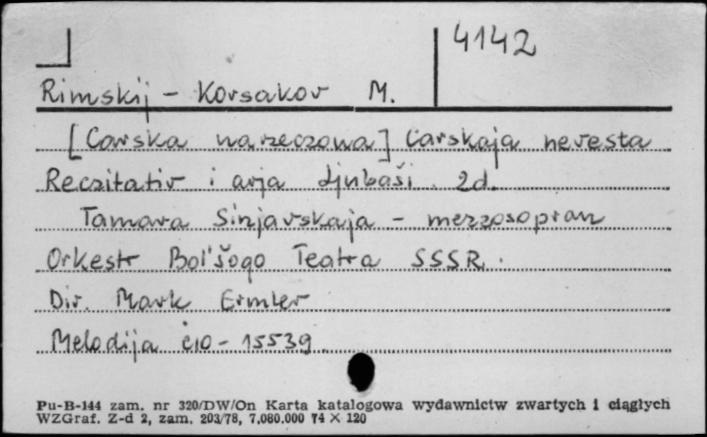 4142
Rimskij - Korsakov M.
[Carska narzeczona] Carskaja nevesta
Reczitativ i arja Ljubaši. 2d.
Tamara Sinjavskaja - mezzosopran
Orkestr Bol'šogo Teatra SSSR.
Dir. Mark Ermler
Melodija C10 - 15539
Pu-B-144 zam. nr 320/DW/On Karta katalogowa wydawnictw zwartych i ciągłych
WZGraf. Z-d 2, zam. 203/78, 7.080.000 74 X 120